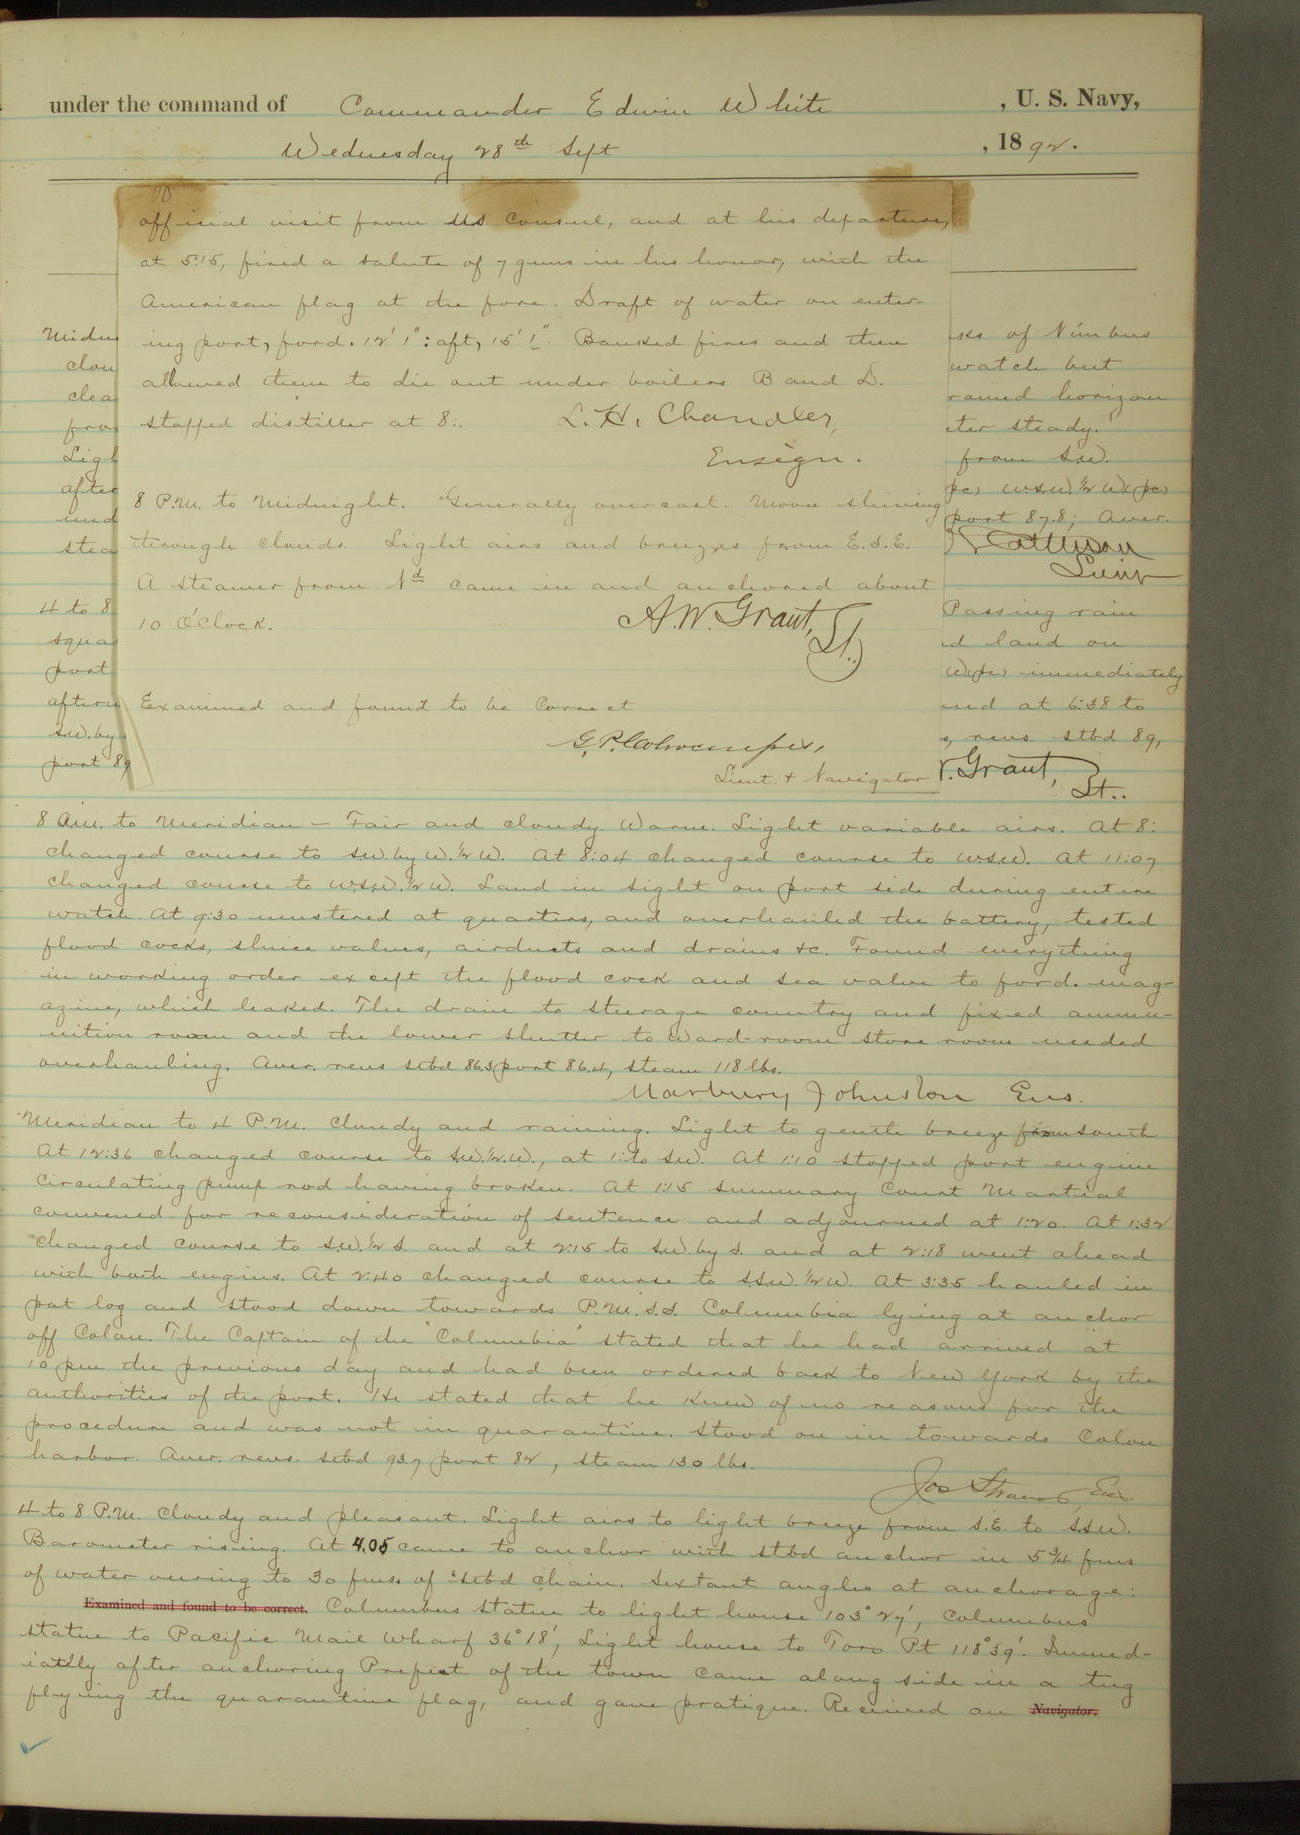 under the command of Commander Edwin White , U. S. Navy,
Wednesday 28th Sept , 1892.
official visit from US Consul, and at his departure,
at 5:15, fired a salute of 7 guns in his honor, with the
American flag at the fore. Draft of water on enter-
ing port, ford. 12' 1": aft, 15' 1". Banked fires and then
allowed them to die out under boilers B and D.
stopped distiller at 8:.
L. H. Chandler,
Ensign.
8 P.M. to Midnight. Generally overcast. Moon shining
through clouds. Light airs and breezes from E.S.E.
A steamer from Nd came in and anchored about
10 O'Clock.
A. W. Grant,
Lt..
Examined and found to be Correct
G. P. Colvocoresses,
Lieut. & Navigator
Midn
clou
clea
fro
Ligh
after
und
stea
4 to 8
squa
port
aftern
SW. by
port 89
ses of Nimbus
watch but
round horizon
ter steady.
from SW.
(pc) WSW.½W (pc)
port 87.8; Aver.
Pattison
Lieut
Passing rain
d land on
W (pc) immediately
und at 6:38 to
s, revs. stbd 89,
. Grant,
Lt..
8 A.M. to Meridian — Fair and cloudy. Warm. Light variable airs. At 8:
changed course to SW. by W.½W. At 8:04 changed course to WSW. At 11:07
changed course to WSW.½W. Land in sight on port side during entire
watch. At 9:30 mustered at quarters, and overhauled the battery, tested
flood cocks, sluice valves, airducts and drains &c. Found everything
in working order except the flood cock and sea valve to ford. mag-
azine, which leaked. The drain to steerage country and fixed ammu-
nition room and the lower shutter to Ward-room store room needed
overhauling. Aver. revs stbd 86.3 port 86.4, steam 118 lbs.
Marbury Johnston Ens.
Meridian to 4 P.M. Cloudy and raining. Light to gentle breeze from south
At 12:36 changed course to SW.½W., at 1: to SW. At 1:10 stopped port engine
circulating pump rod having broken. At 1:15 Summary Court Martial
convened for reconsideration of sentence and adjourned at 1:20. At 1:32
changed course to S.W.½S. and at 2:15 to SW. by S. and at 2:18 went ahead
with both engines. At 2:40 changed course to SSW.½W. At 3:35 hauled in
pat log and stood down towards P.M.S.S. Columbia lying at anchor
off Colon. The Captain of the "Columbia" stated that he had arrived at
10 pm the previous day and had been ordered back to New York by the
authorities of the port. He stated that he knew of no reasons for the
procedure and was not in quarantine. Stood on in towards Colon
harbor. Aver. revs. stbd 93.7 port 82, steam 130 lbs.
Jos Strauss, Ens.
4 to 8 P.M. Cloudy and pleasant. Light airs to light breeze from S.E. to SSW.
Barometer rising. At 4.05 came to anchor with stbd anchor in 5 3/4 fms
of water veering to 30 fms. of stbd chain. Sextant angles at anchorage:
Examined and found to be correct. Columbus statue to light house 103° 27', Columbus
statue to Pacific Mail Wharf 36° 18', Light house to Toro Pt 118° 39'. Immed-
iately after anchoring Prefect of the town came along side in a tug
flying the quarantine flag, and gave pratique. Received an Navigator.